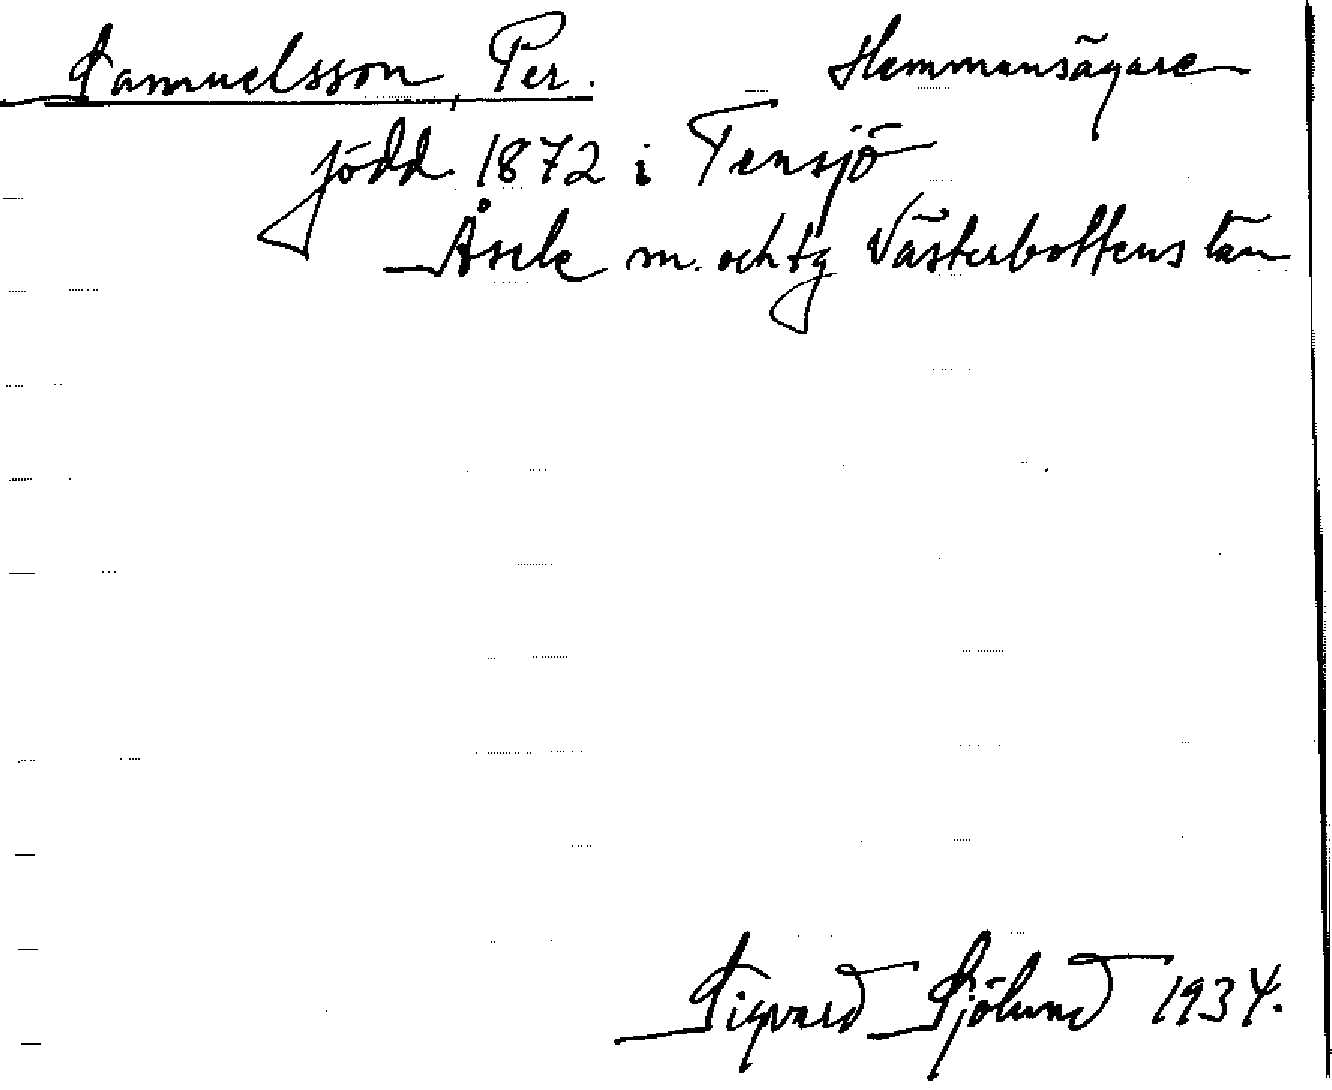 Samuelsson, Per. Hemmansägare
född 1872 i Tensjö
Åsele m. och tg Västerbottens län
Sigvard Sjölund 1934.